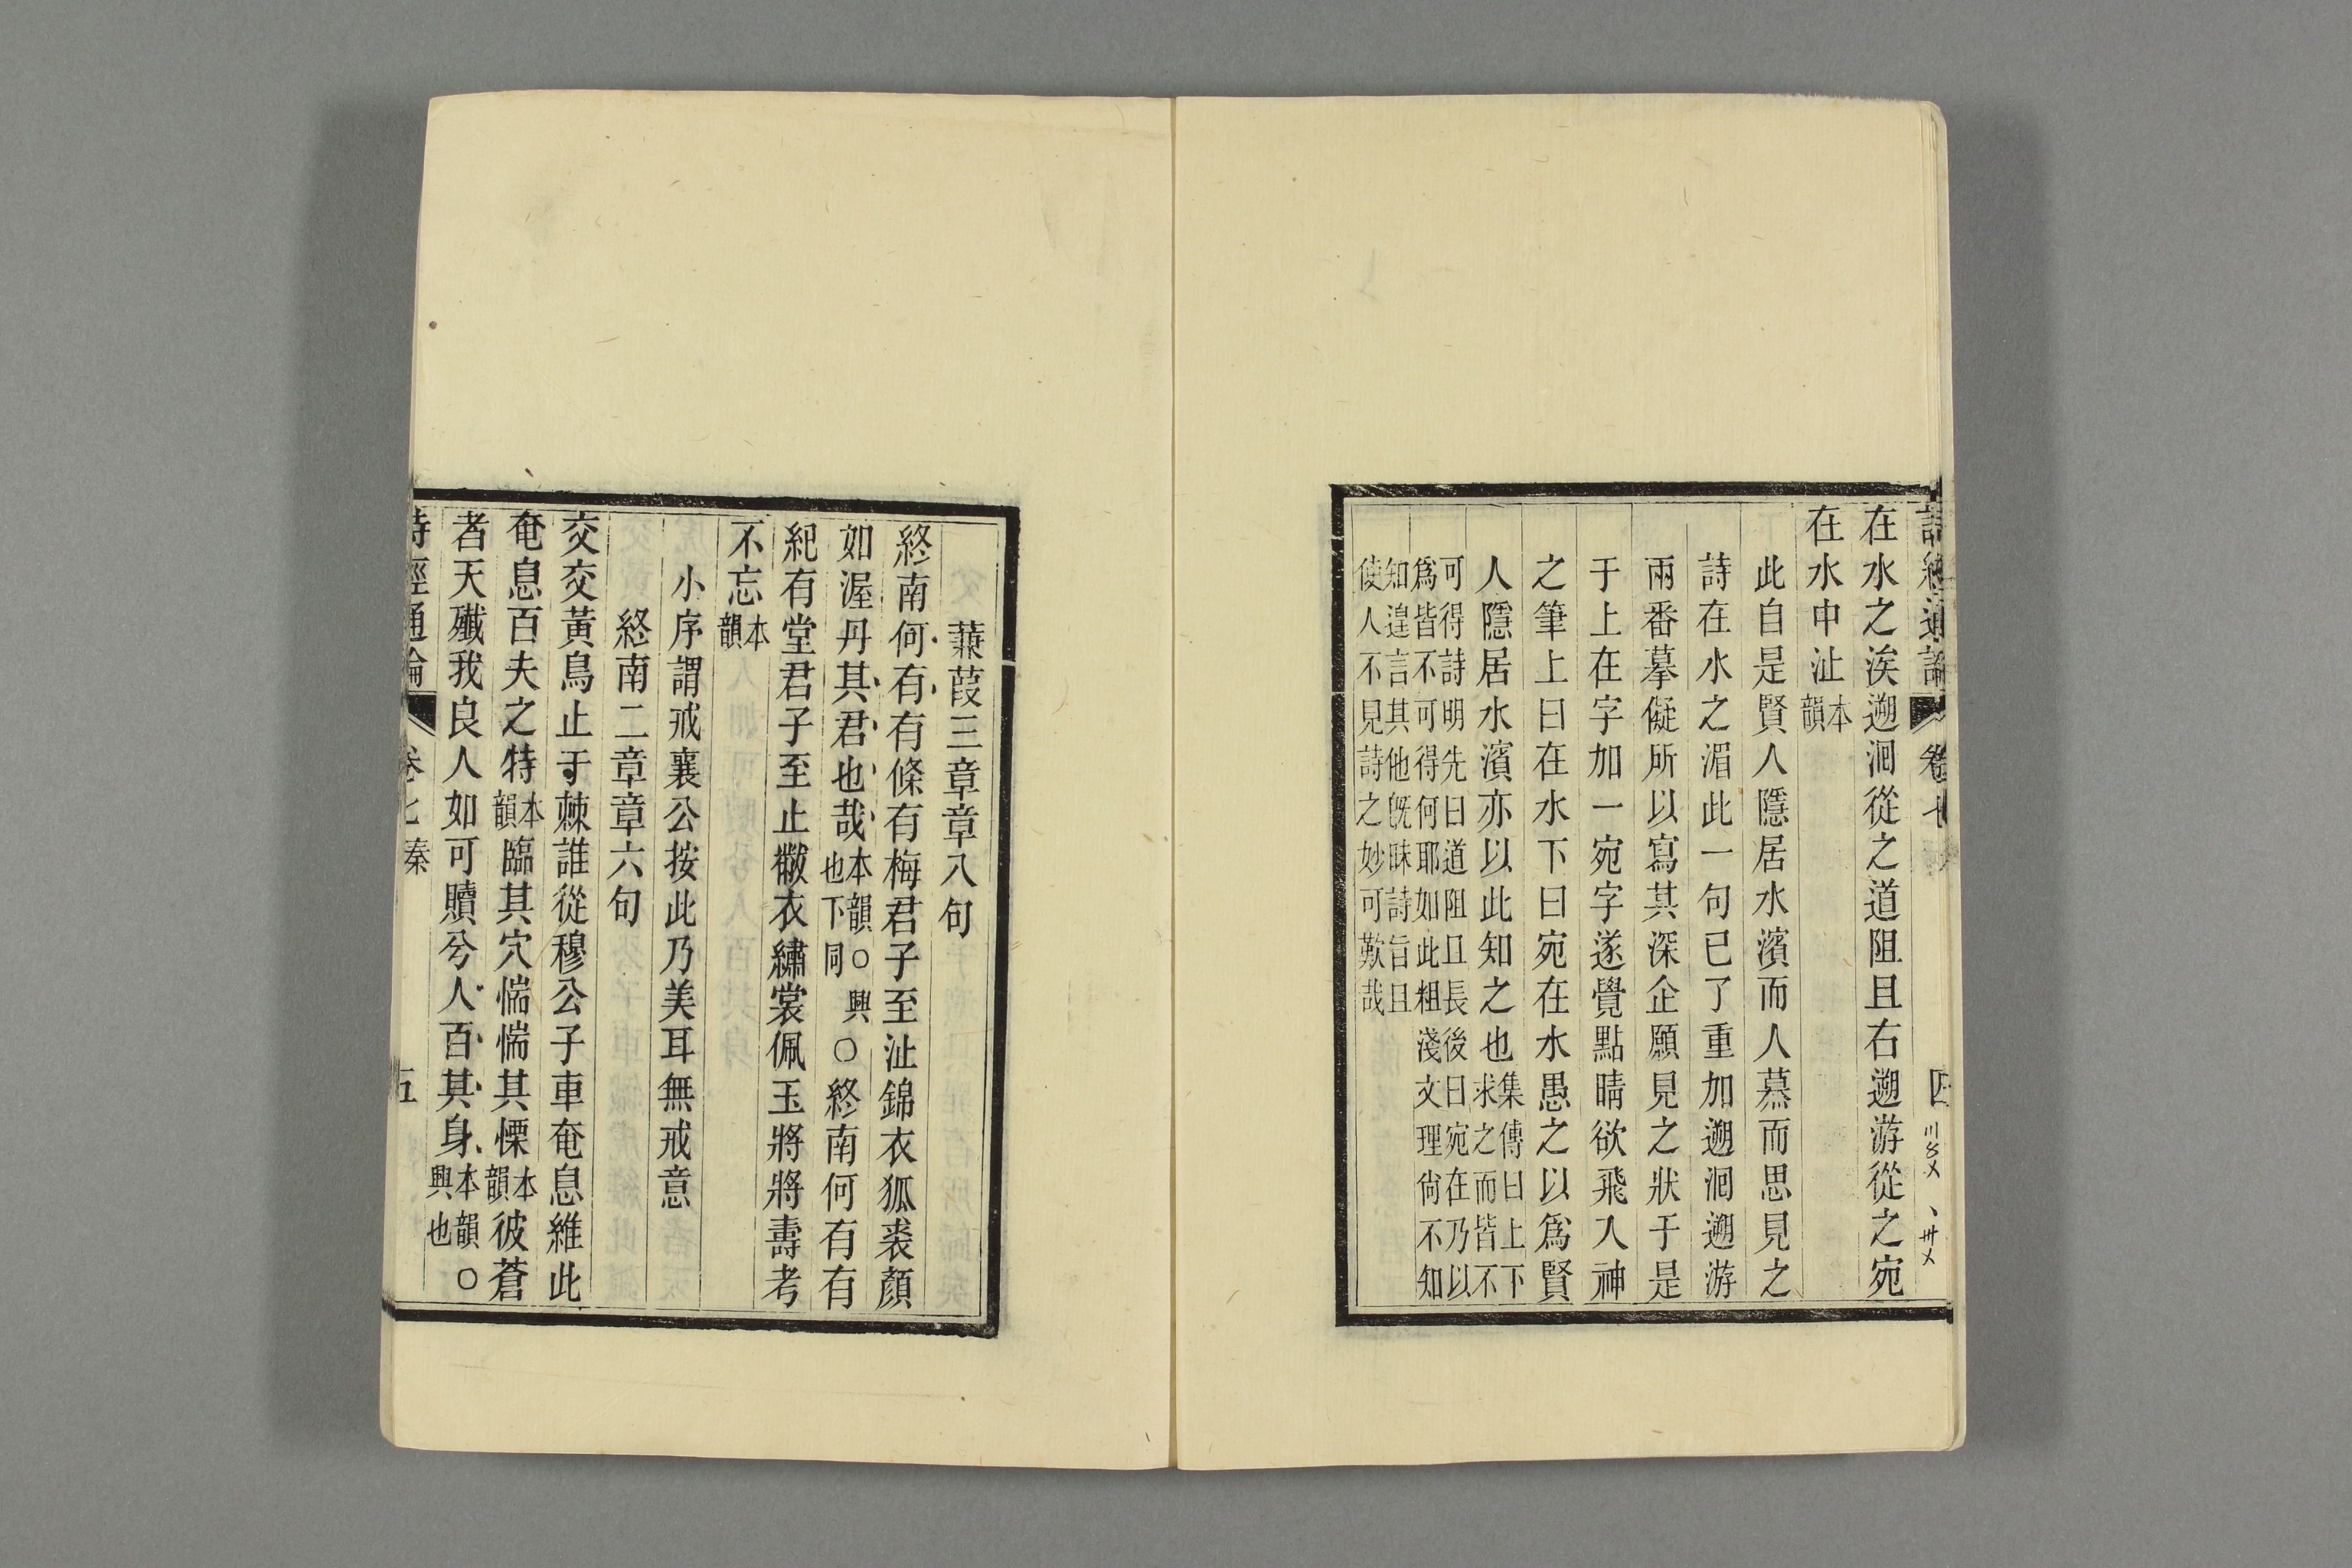 詩經通論 卷七 四
在水之涘遡洄從之道阻且右遡游從之宛
在水中沚本韻
此自是賢人隱居水濱而人慕而思見之
詩在水之湄此一句已了重加遡洄遡游
兩番摹儗所以寫其深企願見之狀于是
于上在字加一宛字遂覺點睛欲飛入神
之筆上曰在水下曰宛在水愚之以爲賢
人隱居水濱亦以此知之也集傳曰上下求之而皆不
可得詩明先曰道阻且長後曰宛在乃以
爲皆不可得何耶如此粗淺文理尙不知
知遑言其他旣昧詩旨且
使人不見詩之妙可歎哉
蒹葭三章章八句
終南何有有條有梅君子至止錦衣狐裘顏
如渥丹其君也哉本韻○興也下同○終南何有有
紀有堂君子至止黻衣繡裳佩玉將將壽考
不忘本韻
小序謂戒襄公按此乃美耳無戒意
終南二章章六句
交交黃鳥止于棘誰從穆公子車奄息維此
奄息百夫之特本韻臨其穴惴惴其慄本韻彼蒼
者天殲我良人如可贖兮人百其身本韻○興也
詩經通論 卷七秦 五